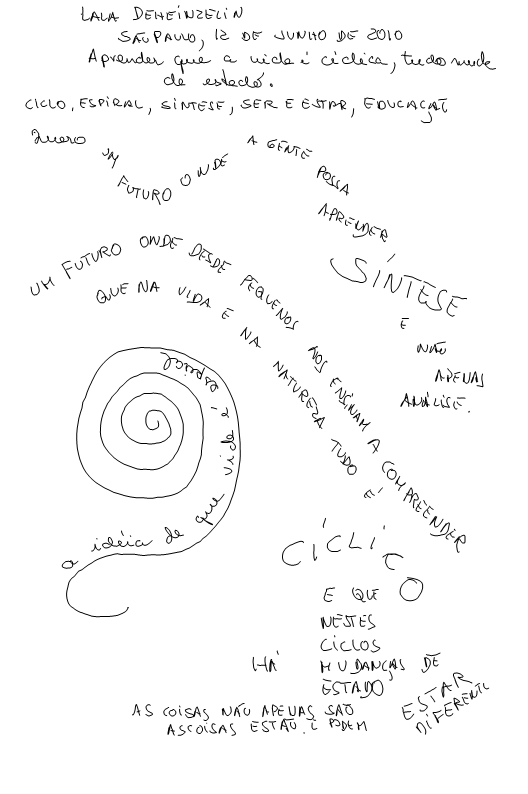 LALA DEHEINZELIN
SÃO PAULO, 12 DE JUNHO DE 2010
Aprender que a vida é cíclica, tudo muda
de estado.
CICLO, ESPIRAL, SÍNTESE, SER E ESTAR, EDUCAÇÃO
Quero UM FUTURO ONDE A GENTE POSSA
APRENDER
SÍNTESE
E
NÃO
APENAS
ANÁLISE.
UM FUTURO ONDE DESDE PEQUENOS NOS ENSINAM A COMPREENDER
QUE NA VIDA E NA NATUREZA TUDO É
CÍCLICO
a idéia de que vida é
E QUE
NESTES
CICLOS
HÁ MUDANÇAS DE
ESTADO
AS COISAS NÃO APENAS SÃO
AS COISAS ESTÃO. E PODEM
ESTAR
DIFERENTE